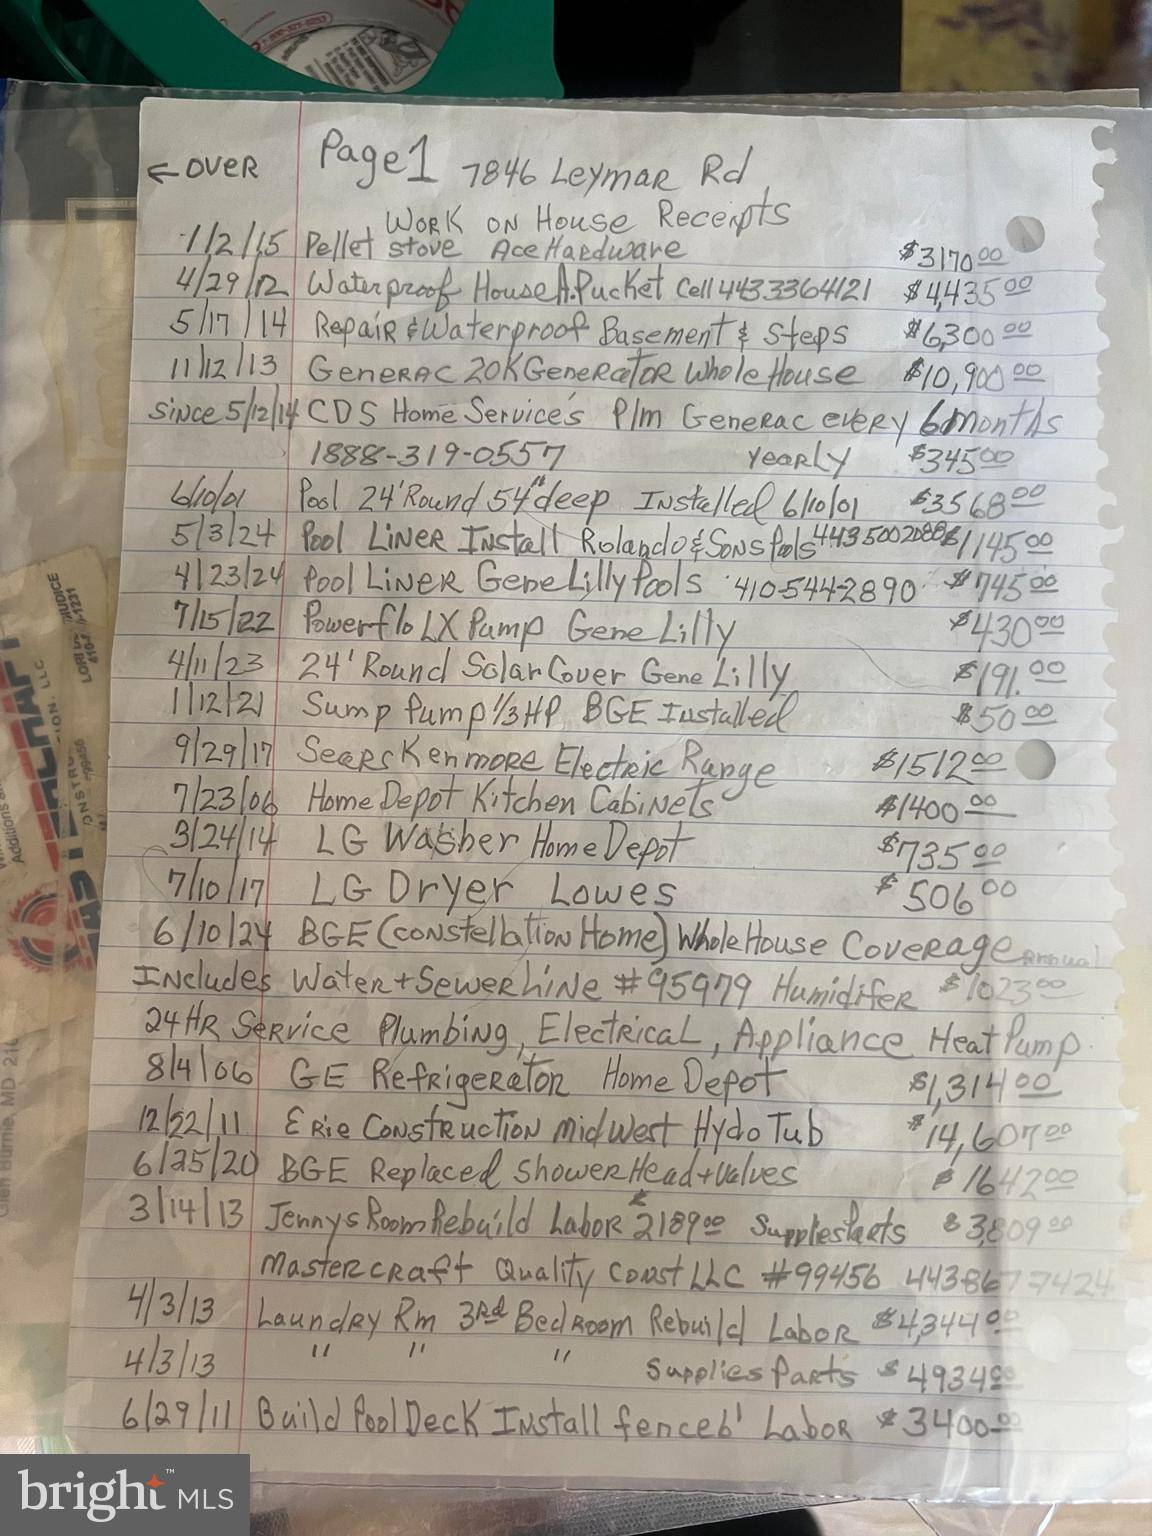 1-800-327-0253
← OVER Page 1 7846 Leymar Rd
Work on House Receipts
1/2/15 Pellet stove Ace Hardware $3170.00
4/29/12 Waterproof House A. Pucket Cell 4433364121 $4,435.00
5/17/14 Repair & Waterproof Basement & Steps $6,300.00
11/12/13 Generac 20K Generator Whole House $10,900.00
Since 5/12/14 CDS Home Service's P/m Generac every 6 months
1888-319-0557 yearly $345.00
6/10/01 Pool 24' Round 54" deep Installed 6/10/01 $3568.00
5/3/24 Pool Liner Install Rolando & Sons Pools 4435002088 $1145.00
4/23/24 Pool Liner Gene Lilly Pools 410-544-2890 $745.00
7/15/22 Powerflo LX Pump Gene Lilly $430.00
4/11/23 24' Round Solar Cover Gene Lilly $191.00
1/12/21 Sump Pump 1/3 HP BGE Installed $50.00
9/29/17 Sears Kenmore Electric Range $1512.00
7/23/06 Home Depot Kitchen Cabinets $1400.00
3/24/14 LG Washer Home Depot $735.00
7/10/17 LG Dryer Lowes $506.00
6/10/24 BGE (Constellation Home) Whole House Coverage Annual
Includes Water + Sewer Line #95979 Humidifer $1023.00
24 HR Service Plumbing, Electrical, Appliance Heat Pump
8/4/06 GE Refrigerator Home Depot $1,314.00
12/22/11 Erie Construction Midwest Hydo Tub $14,607.00
6/25/20 BGE Replaced Shower Head + Valves $1642.00
3/14/13 Jennys Room Rebuild Labor $2189.00 Supplies Parts $3,809.00
Mastercraft Quality Const LLC #99456 4438677424
4/3/13 Laundry Rm 3rd Bedroom Rebuild Labor $4,344.00
4/3/13 " " " Supplies Parts $4934.00
6/29/11 Build Pool Deck Install fence 6' Labor $3400.00
Additions
Glen Burnie, MD
bright™ MLS